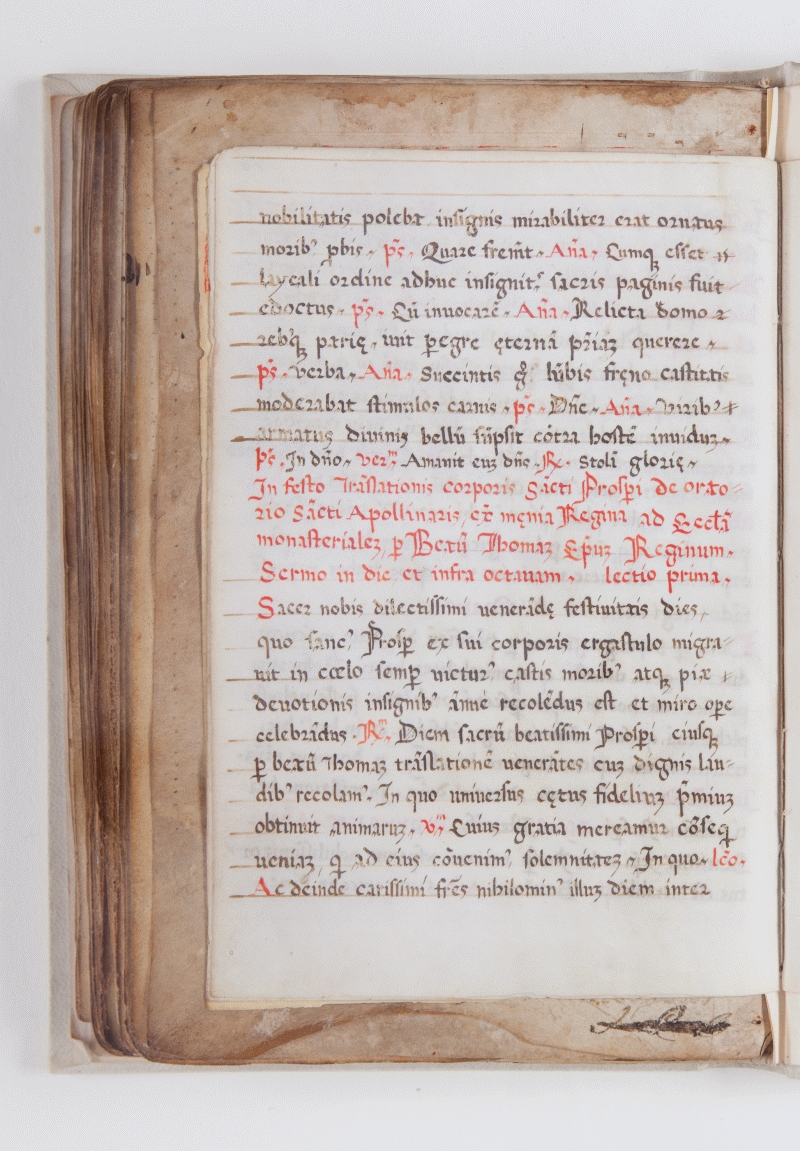 nobilitatis polebat insignis mirabiliter erat ornatus
morib⁹ ꝓbis, ps̃. Quare frem̃t, Añа, Cumq̨ esset
laycali ordine adhuc insignit⁹, sacris paginis fuit
edoctus, ps̃. Cũ invocarẽ, Aña, Relicta domo ꝛ
reb⁹q̨ patrię, iuit ꝑegre ęternã p̃riaꝫ querere,
ps̃. verba, Aña, Succintis g̊ lũbis fręno castitatis
moderabat stimulos carnis, ps̃. Dñe, Aña, Virib⁹
armatus divinis bellũ sũpsit cõtra hostẽ inviduꝫ,
ps̃. In dño, ver⁹, Amavit euꝫ dñs, ℟. Stolã glorię,
In festo Trãslationis corporis Sãcti Prosꝑi de orato-
rio Sãcti Apollinaris, ex̃ męnia Regina, ad Eccłã
monasterialeꝫ, ꝑ Beatũ Thomaꝫ Ep̃uꝫ Reginum,
Sermo in die et infra octavam, lectio prima,
Sacer nobis dilectissimi venerãdę festivitatis dies,
quo sanc⁹ Prosꝑ ex sui corporis ergastulo migra-
vit in cœlo semꝑ victur⁹ castis morib⁹ atq̨ piæ
devotionis insignib⁹ ãnue recolẽdus est et miro oꝑe
celebrãdus, ℟. Diem sacrũ beatissimi Prosꝑi eiusq̨
ꝑ beatũ Thomaꝫ trãslationẽ venerãtes cuꝫ dignis lau-
dib⁹ recolam⁹, In quo universus cętus fideliuꝫ p̃miuꝫ
obtinuit animaruꝫ, ℣. Cuius gratia mereamur cõseq̃
veniaꝫ, q̃ ad eius cõvenim⁹ solemnitateꝫ, In quo, lc̃o.
Ac deinde carissimi frẽs nihilomin⁹ illuꝫ diem inter